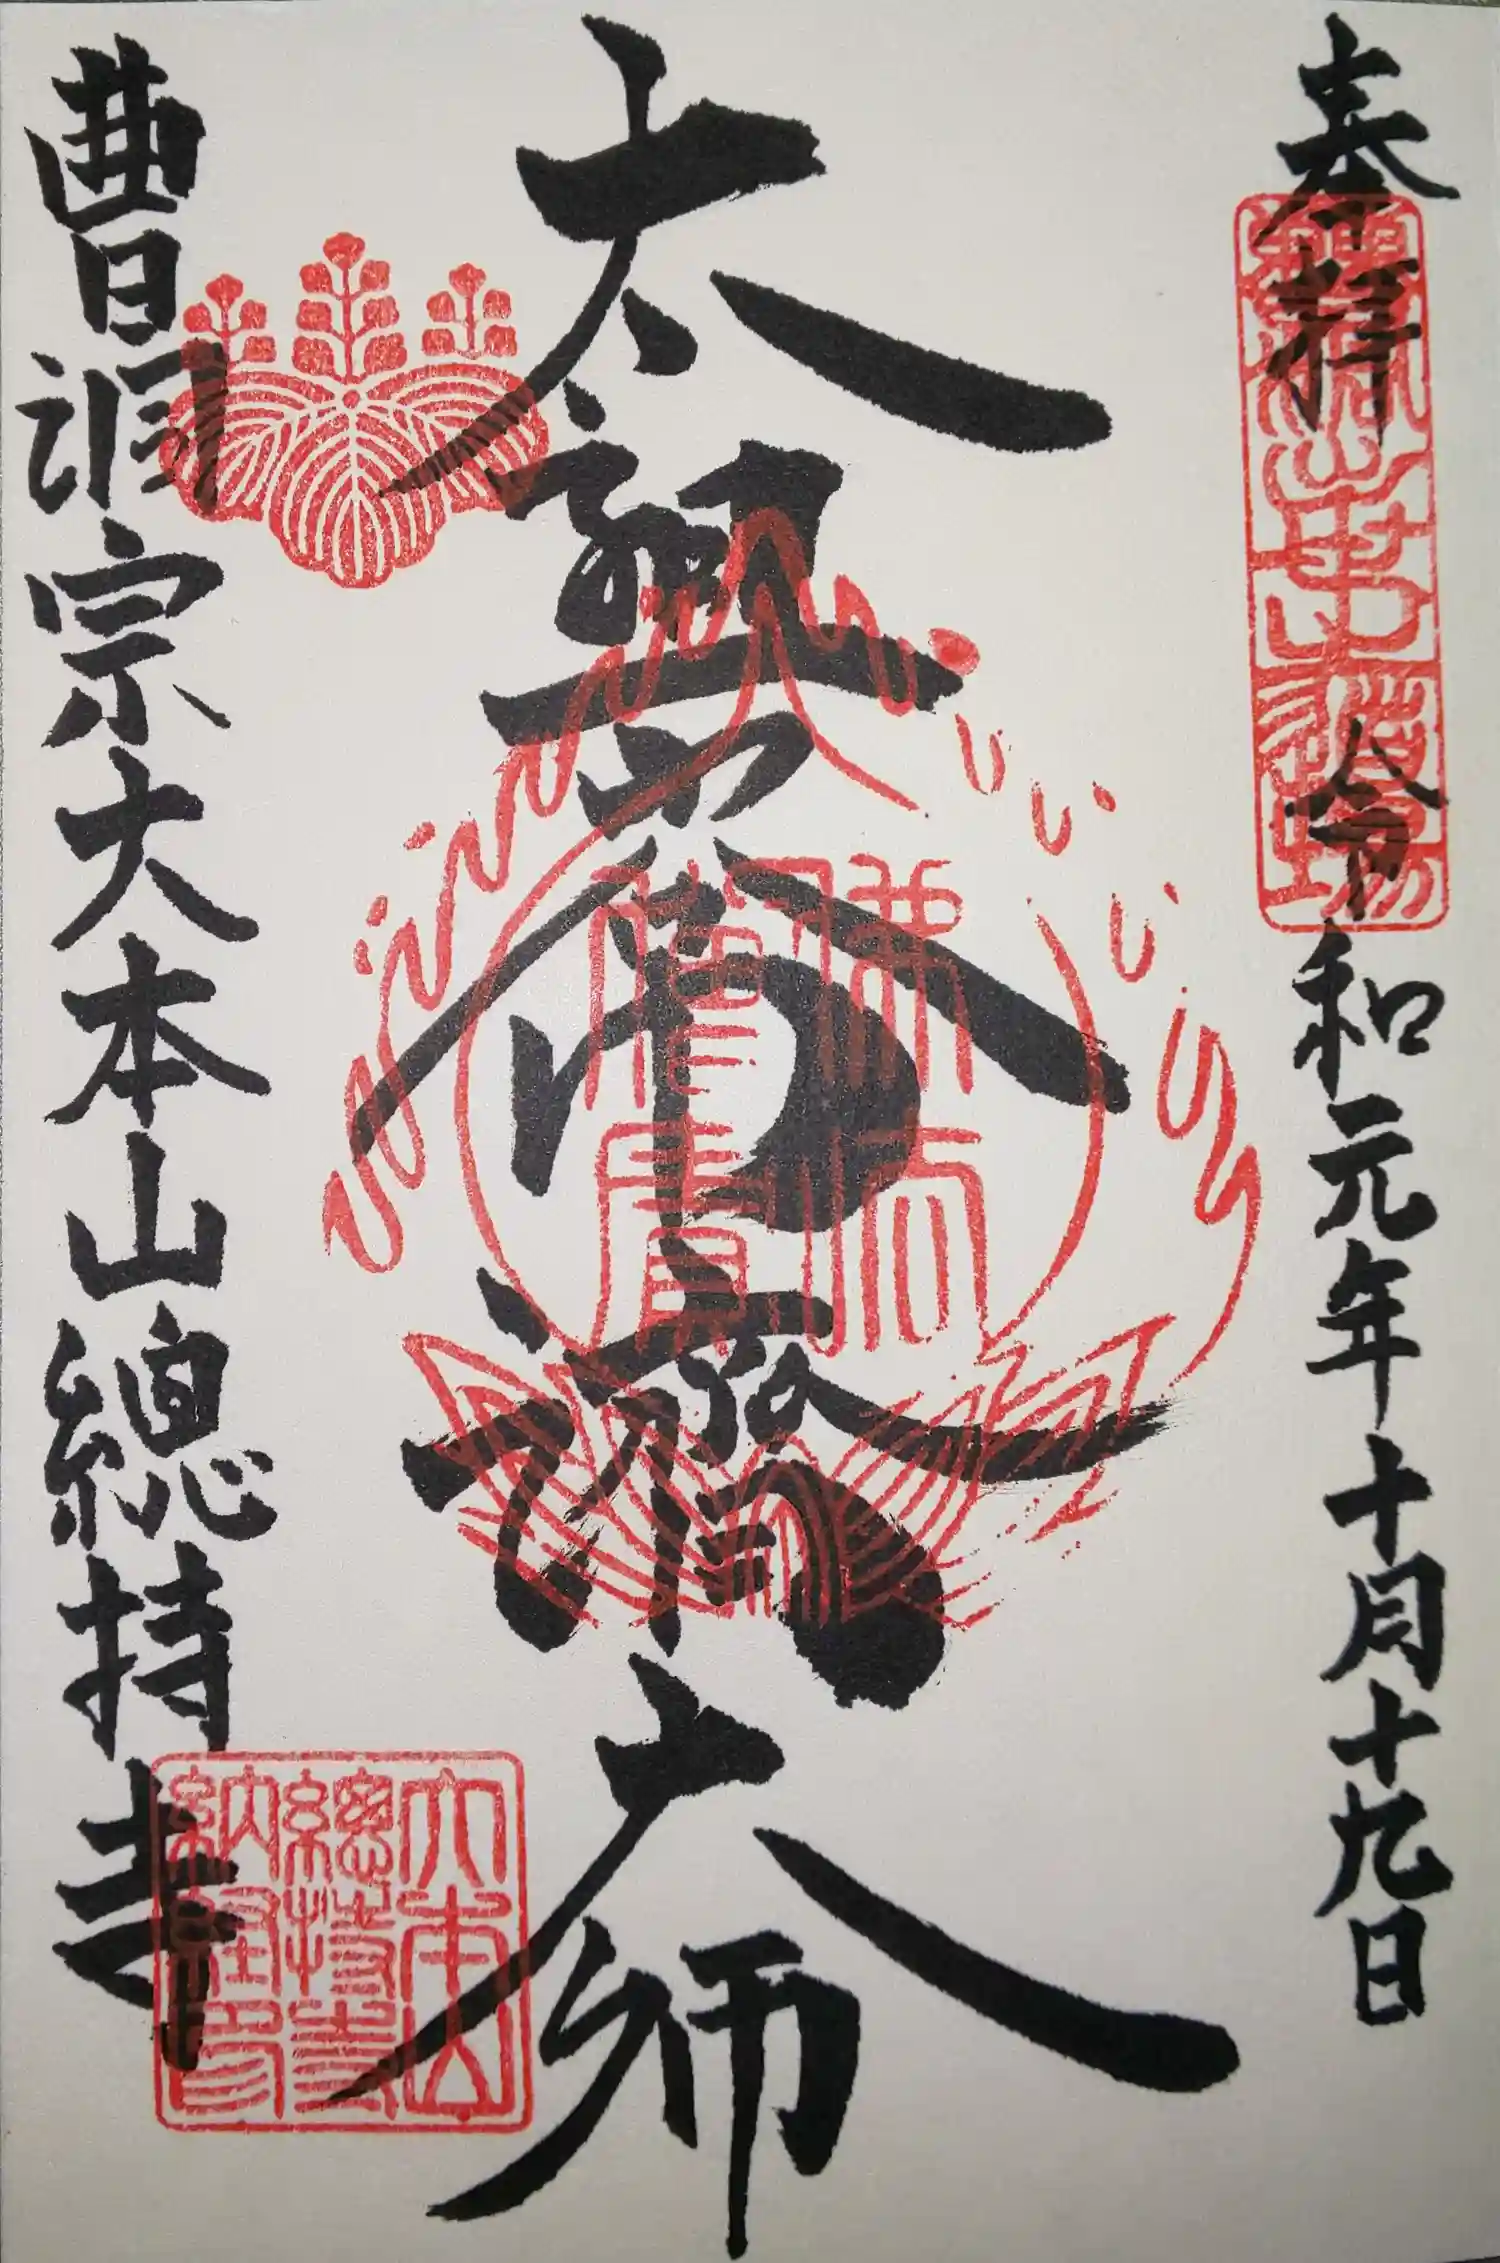 奉拝
令和元年十月十九日
太祖常濟大師
佛法
僧寶
曹洞宗大本山總持寺
大本山
總持寺
納經印